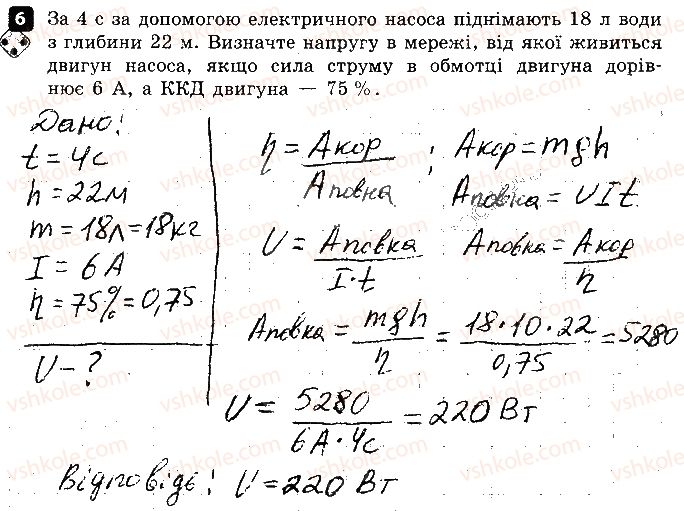 6 За 4 с за допомогою електричного насоса піднімають 18 л води
з глибини 22 м. Визначте напругу в мережі, від якої живиться
двигун насоса, якщо сила струму в обмотці двигуна дорів-
нює 6 А, а ККД двигуна — 75 %.
Дано!
t = 4с
h = 22м
m = 18л = 18кг
I = 6А
η = 75% = 0,75
U - ?
η = Aкор / Aповна ; Aкор = mgh
Aповна = UIt
U = Aповка / I·t
Aповна = Aкор / η
Aповка = mgh / η = 18·10·22 / 0,75 = 5280
U = 5280 / 6А·4с = 220 Вт
Відповідь! U = 220 Вт
vshkole.com